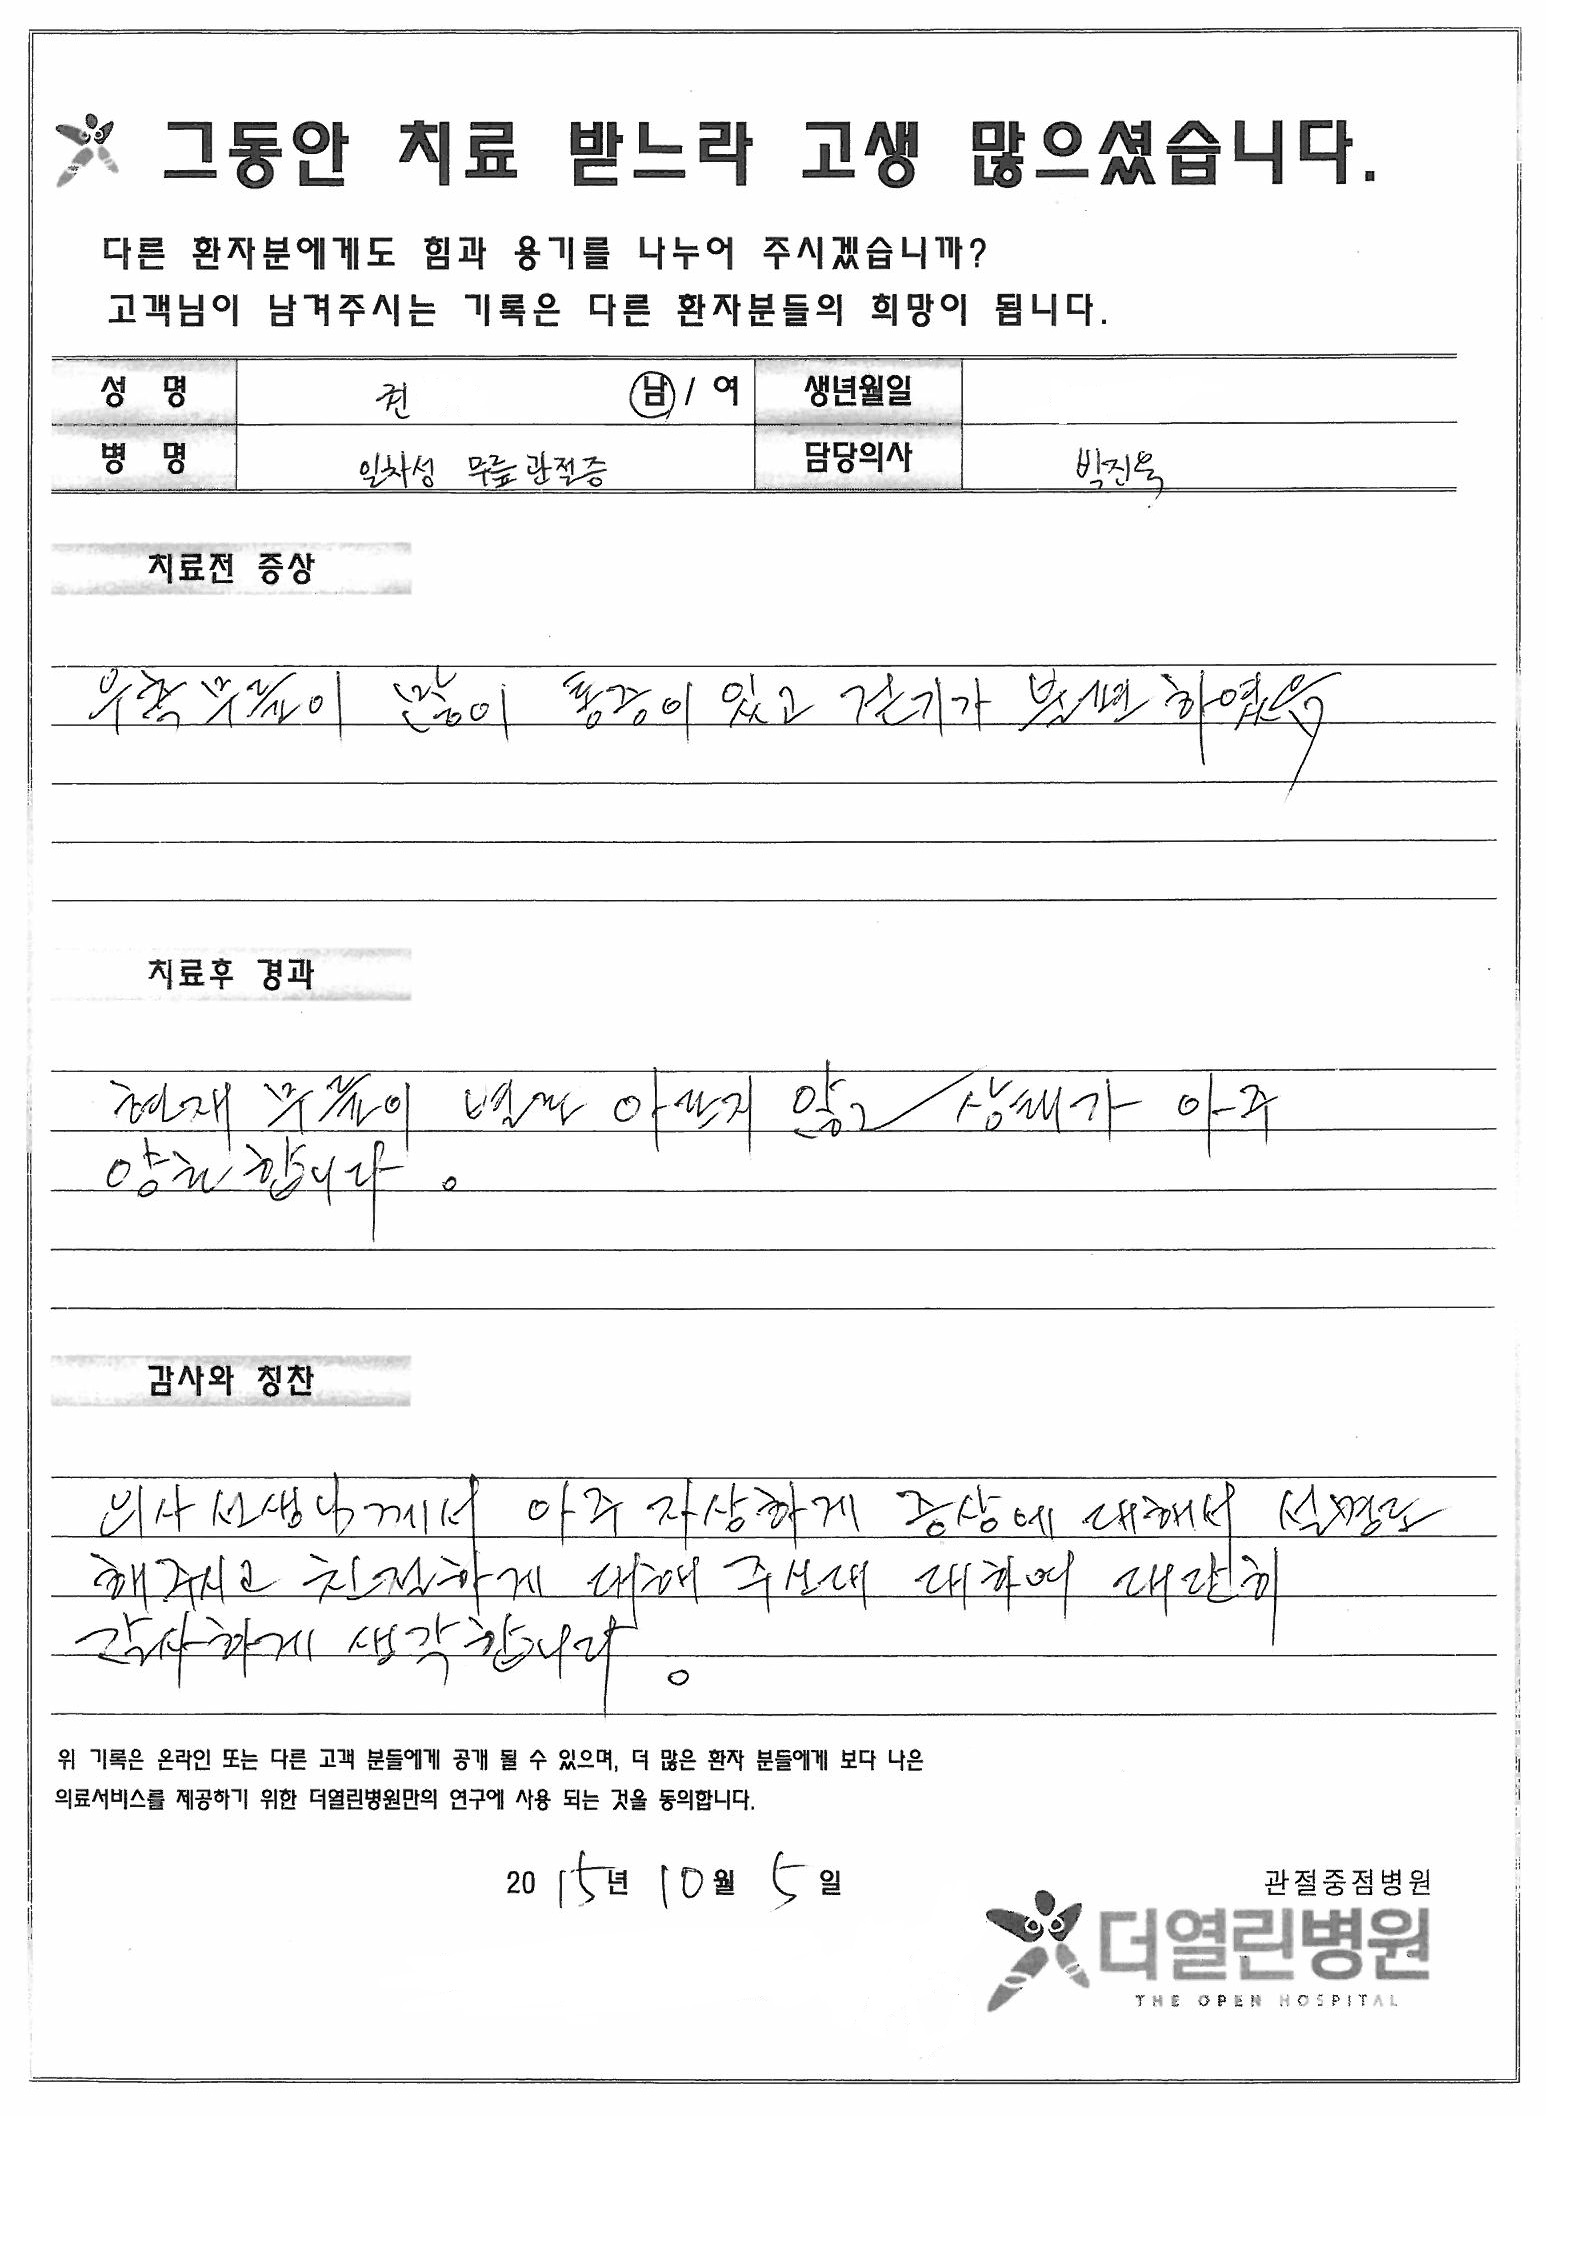 그동안 치료 받느라 고생 많으셨습니다.
다른 환자분에게도 힘과 용기를 나누어 주시겠습니까?
고객님이 남겨주시는 기록은 다른 환자분들의 희망이 됩니다.
성 명 권 남 / 여 생년월일
병 명 일차성 무릎 관절증 담당의사 박진욱
치료전 증상
우측 무릎이 많이 통증이 있고 걷기가 불편 하였음
치료후 경과
현재 무릎이 별로 아프지 않고 상태가 아주
양호 합니다.
감사와 칭찬
의사 선생님께서 아주 자상하게 증상에 대해서 설명도
해주시고 친절하게 대해 주신데 대하여 대단히
감사하게 생각합니다.
위 기록은 온라인 또는 다른 고객 분들에게 공개 될 수 있으며, 더 많은 환자 분들에게 보다 나은
의료서비스를 제공하기 위한 더열린병원만의 연구에 사용 되는 것을 동의합니다.
20 15년 10월 5일
관절중점병원
더열린병원
THE OPEN HOSPITAL